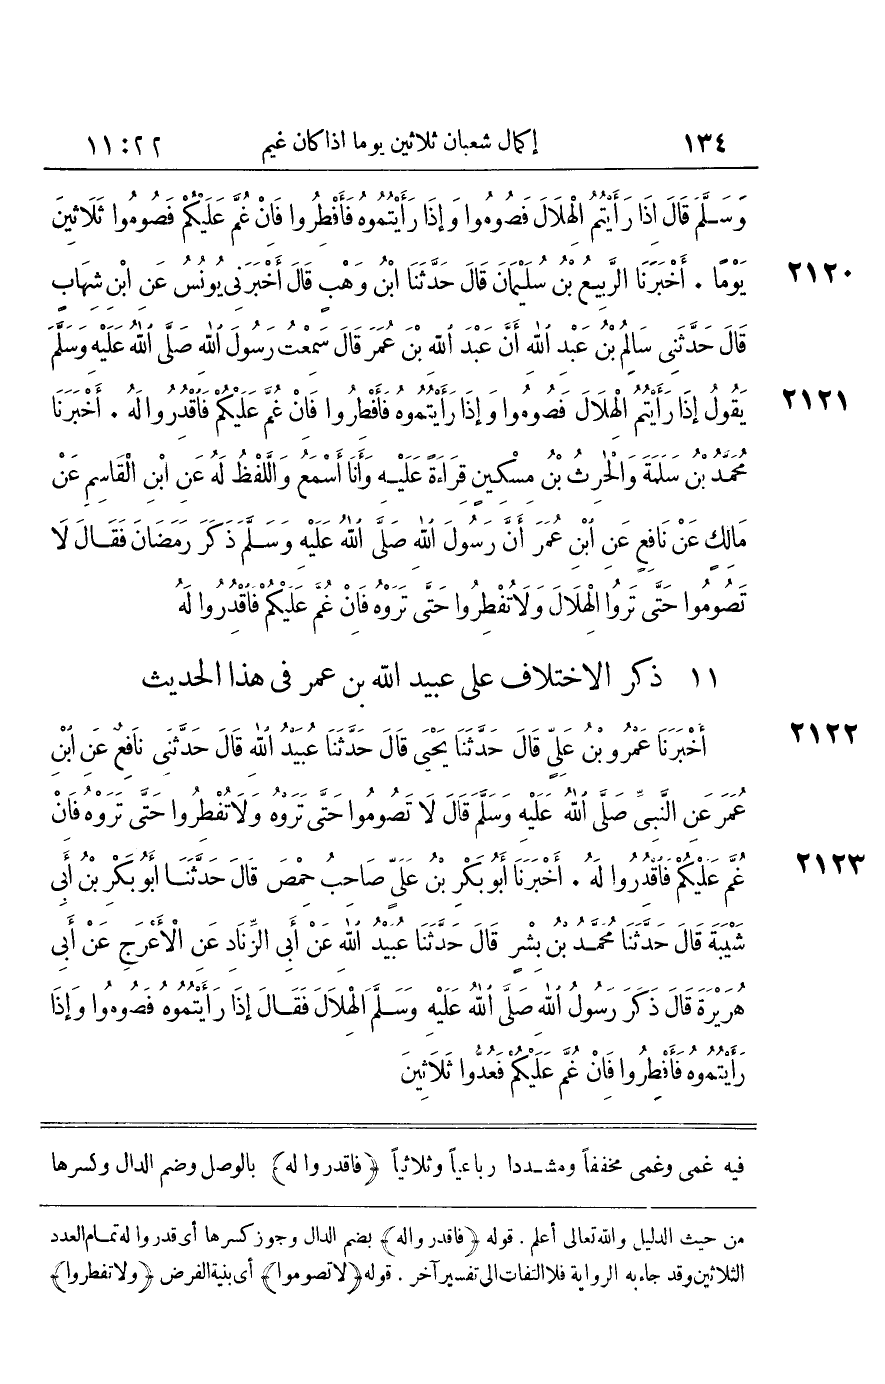 ١٣٤ إكمال شعبان ثلاثين يوما اذا كان غيم ٢٢ : ١١
وَسَلَّمَ قَالَ إِذَا رَأَيْتُمُ الْهِلَالَ فَصُومُوا وَإِذَا رَأَيْتُمُوهُ فَأَفْطِرُوا فَإِنْ غُمَّ عَلَيْكُمْ فَصُومُوا ثَلَاثِينَ
٢١٢٠ يَوْمًا . أَخْبَرَنَا الرَّبِيعُ بْنُ سُلَيْمَانَ قَالَ حَدَّثَنَا ابْنُ وَهْبٍ قَالَ أَخْبَرَنِى يُونُسُ عَنِ ابْنِ شِهَابٍ
قَالَ حَدَّثَنِى سَالِمُ بْنُ عَبْدِ اللهِ أَنَّ عَبْدَ اللهِ بْنَ عُمَرَ قَالَ سَمِعْتُ رَسُولَ اللهِ صَلَّى اللهُ عَلَيْهِ وَسَلَّمَ
٢١٢١ يَقُولُ إِذَا رَأَيْتُمُ الْهِلَالَ فَصُومُوا وَإِذَا رَأَيْتُمُوهُ فَأَفْطِرُوا فَإِنْ غُمَّ عَلَيْكُمْ فَاقْدُرُوا لَهُ . أَخْبَرَنَا
مُحَمَّدُ بْنُ سَلَمَةَ وَالْحٰرِثُ بْنُ مِسْكِينٍ قِرَاءَةً عَلَيْهِ وَأَنَا أَسْمَعُ وَاللَّفْظُ لَهُ عَنِ ابْنِ الْقَاسِمِ عَنْ
مَالِكٍ عَنْ نَافِعٍ عَنِ ابْنِ عُمَرَ أَنَّ رَسُولَ اللهِ صَلَّى اللهُ عَلَيْهِ وَسَلَّمَ ذَكَرَ رَمَضَانَ فَقَالَ لَا
تَصُومُوا حَتَّى تَرَوُا الْهِلَالَ وَلَا تُفْطِرُوا حَتَّى تَرَوْهُ فَإِنْ غُمَّ عَلَيْكُمْ فَاقْدُرُوا لَهُ
١١ ذكر الاختلاف على عبيد الله بن عمر فى هذا الحديث
٢١٢٢ أَخْبَرَنَا عَمْرُو بْنُ عَلِيٍّ قَالَ حَدَّثَنَا يَحْيَى قَالَ حَدَّثَنَا عُبَيْدُ اللهِ قَالَ حَدَّثَنِى نَافِعٌ عَنِ ابْنِ
عُمَرَ عَنِ النَّبِيِّ صَلَّى اللهُ عَلَيْهِ وَسَلَّمَ قَالَ لَا تَصُومُوا حَتَّى تَرَوْهُ وَلَا تُفْطِرُوا حَتَّى تَرَوْهُ فَإِنْ
٢١٢٣ غُمَّ عَلَيْكُمْ فَاقْدُرُوا لَهُ . أَخْبَرَنَا أَبُو بَكْرِ بْنُ عَلِيٍّ صَاحِبُ حِمْصَ قَالَ حَدَّثَنَا أَبُو بَكْرِ بْنُ أَبِى
شَيْبَةَ قَالَ حَدَّثَنَا مُحَمَّدُ بْنُ بِشْرٍ قَالَ حَدَّثَنَا عُبَيْدُ اللهِ عَنْ أَبِى الزِّنَادِ عَنِ الْأَعْرَجِ عَنْ أَبِى
هُرَيْرَةَ قَالَ ذَكَرَ رَسُولُ اللهِ صَلَّى اللهُ عَلَيْهِ وَسَلَّمَ الْهِلَالَ فَقَالَ إِذَا رَأَيْتُمُوهُ فَصُومُوا وَإِذَا
رَأَيْتُمُوهُ فَأَفْطِرُوا فَإِنْ غُمَّ عَلَيْكُمْ فَعُدُّوا ثَلَاثِينَ
فيه غمى وغمى مخففاً ومشددا رباعياً وثلاثياً ﴿ فاقدروا له ﴾ بالوصل وضم الدال وكسرها
من حيث الدليل والله تعالى أعلم . قوله ﴿ فاقدروا له ﴾ بضم الدال وجوز كسرها أى قدروا له تمام العدد
الثلاثين وقد جاء به الرواية فلا التفات الى تفسير آخر . قوله ﴿ لا تصوموا ﴾ أى بنية الفرض ﴿ ولا تفطروا ﴾